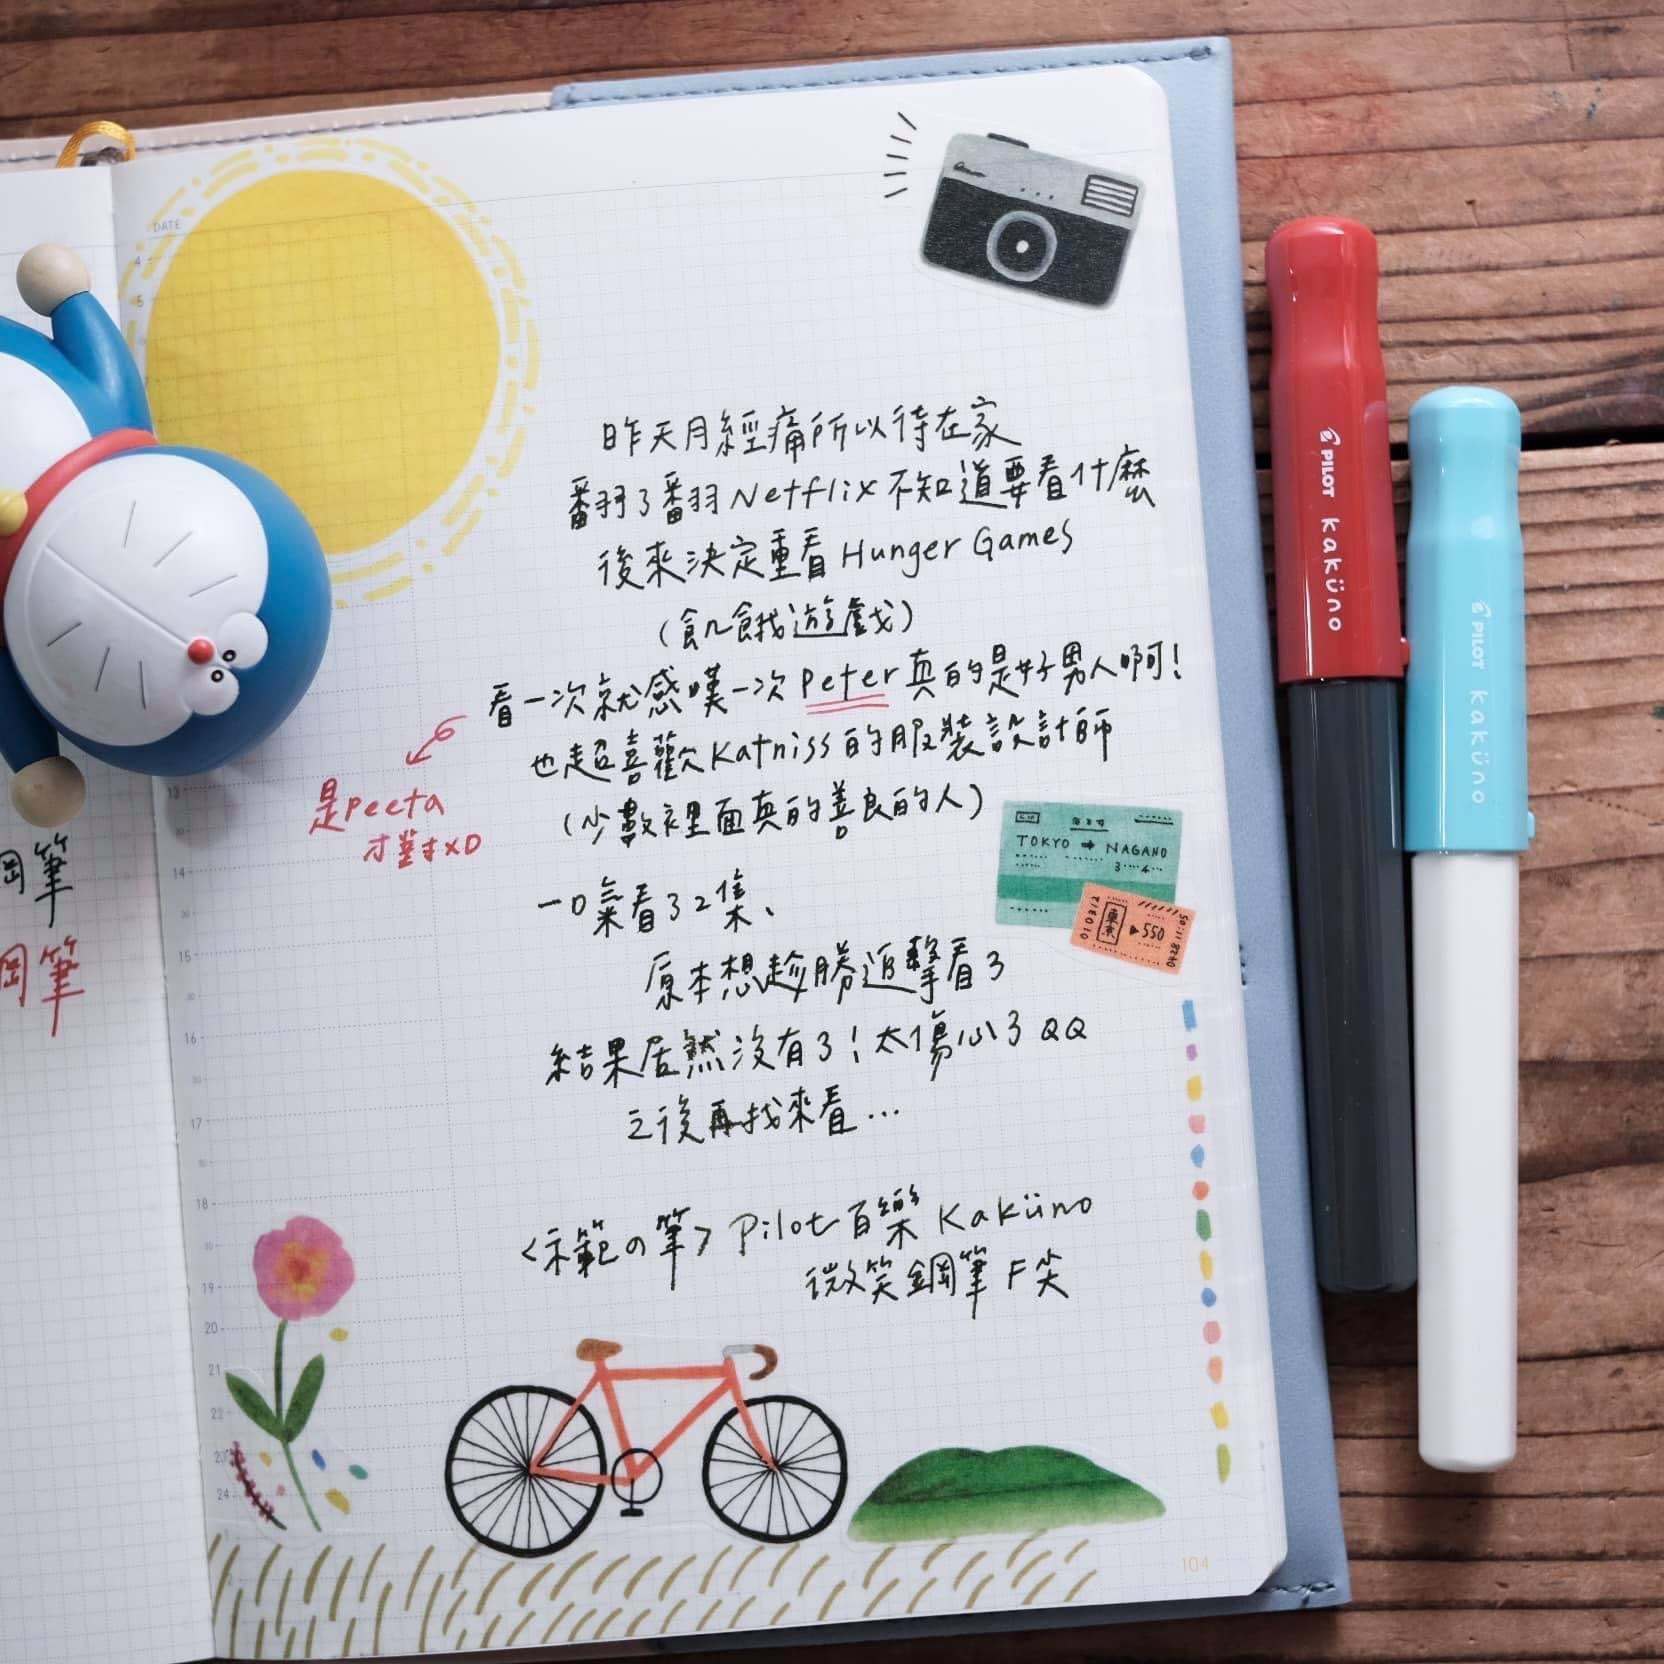 DATE
昨天月經痛所以待在家
翻了翻Netflix不知道要看什麼
後來決定重看Hunger Games
(飢餓遊戲)
看一次就感嘆一次Peter真的是好男人啊!
是Peeta
才對XD
也超喜歡Katniss的服裝設計師
(少數裡面真的善良的人)
一口氣看了2集、
原本想趁勝追擊看3
結果居然沒有3!太傷心了QQ
之後再找來看...
<示範の筆> Pilot百樂 Kaküno
微笑鋼筆F尖
TOKYO → NAGANO
3 4
東京
▶550
鋼筆
鋼筆
4
5
13
14
15
16
17
18
19
20
21
22
23
24
104
PILOT kaküno
PILOT kaküno